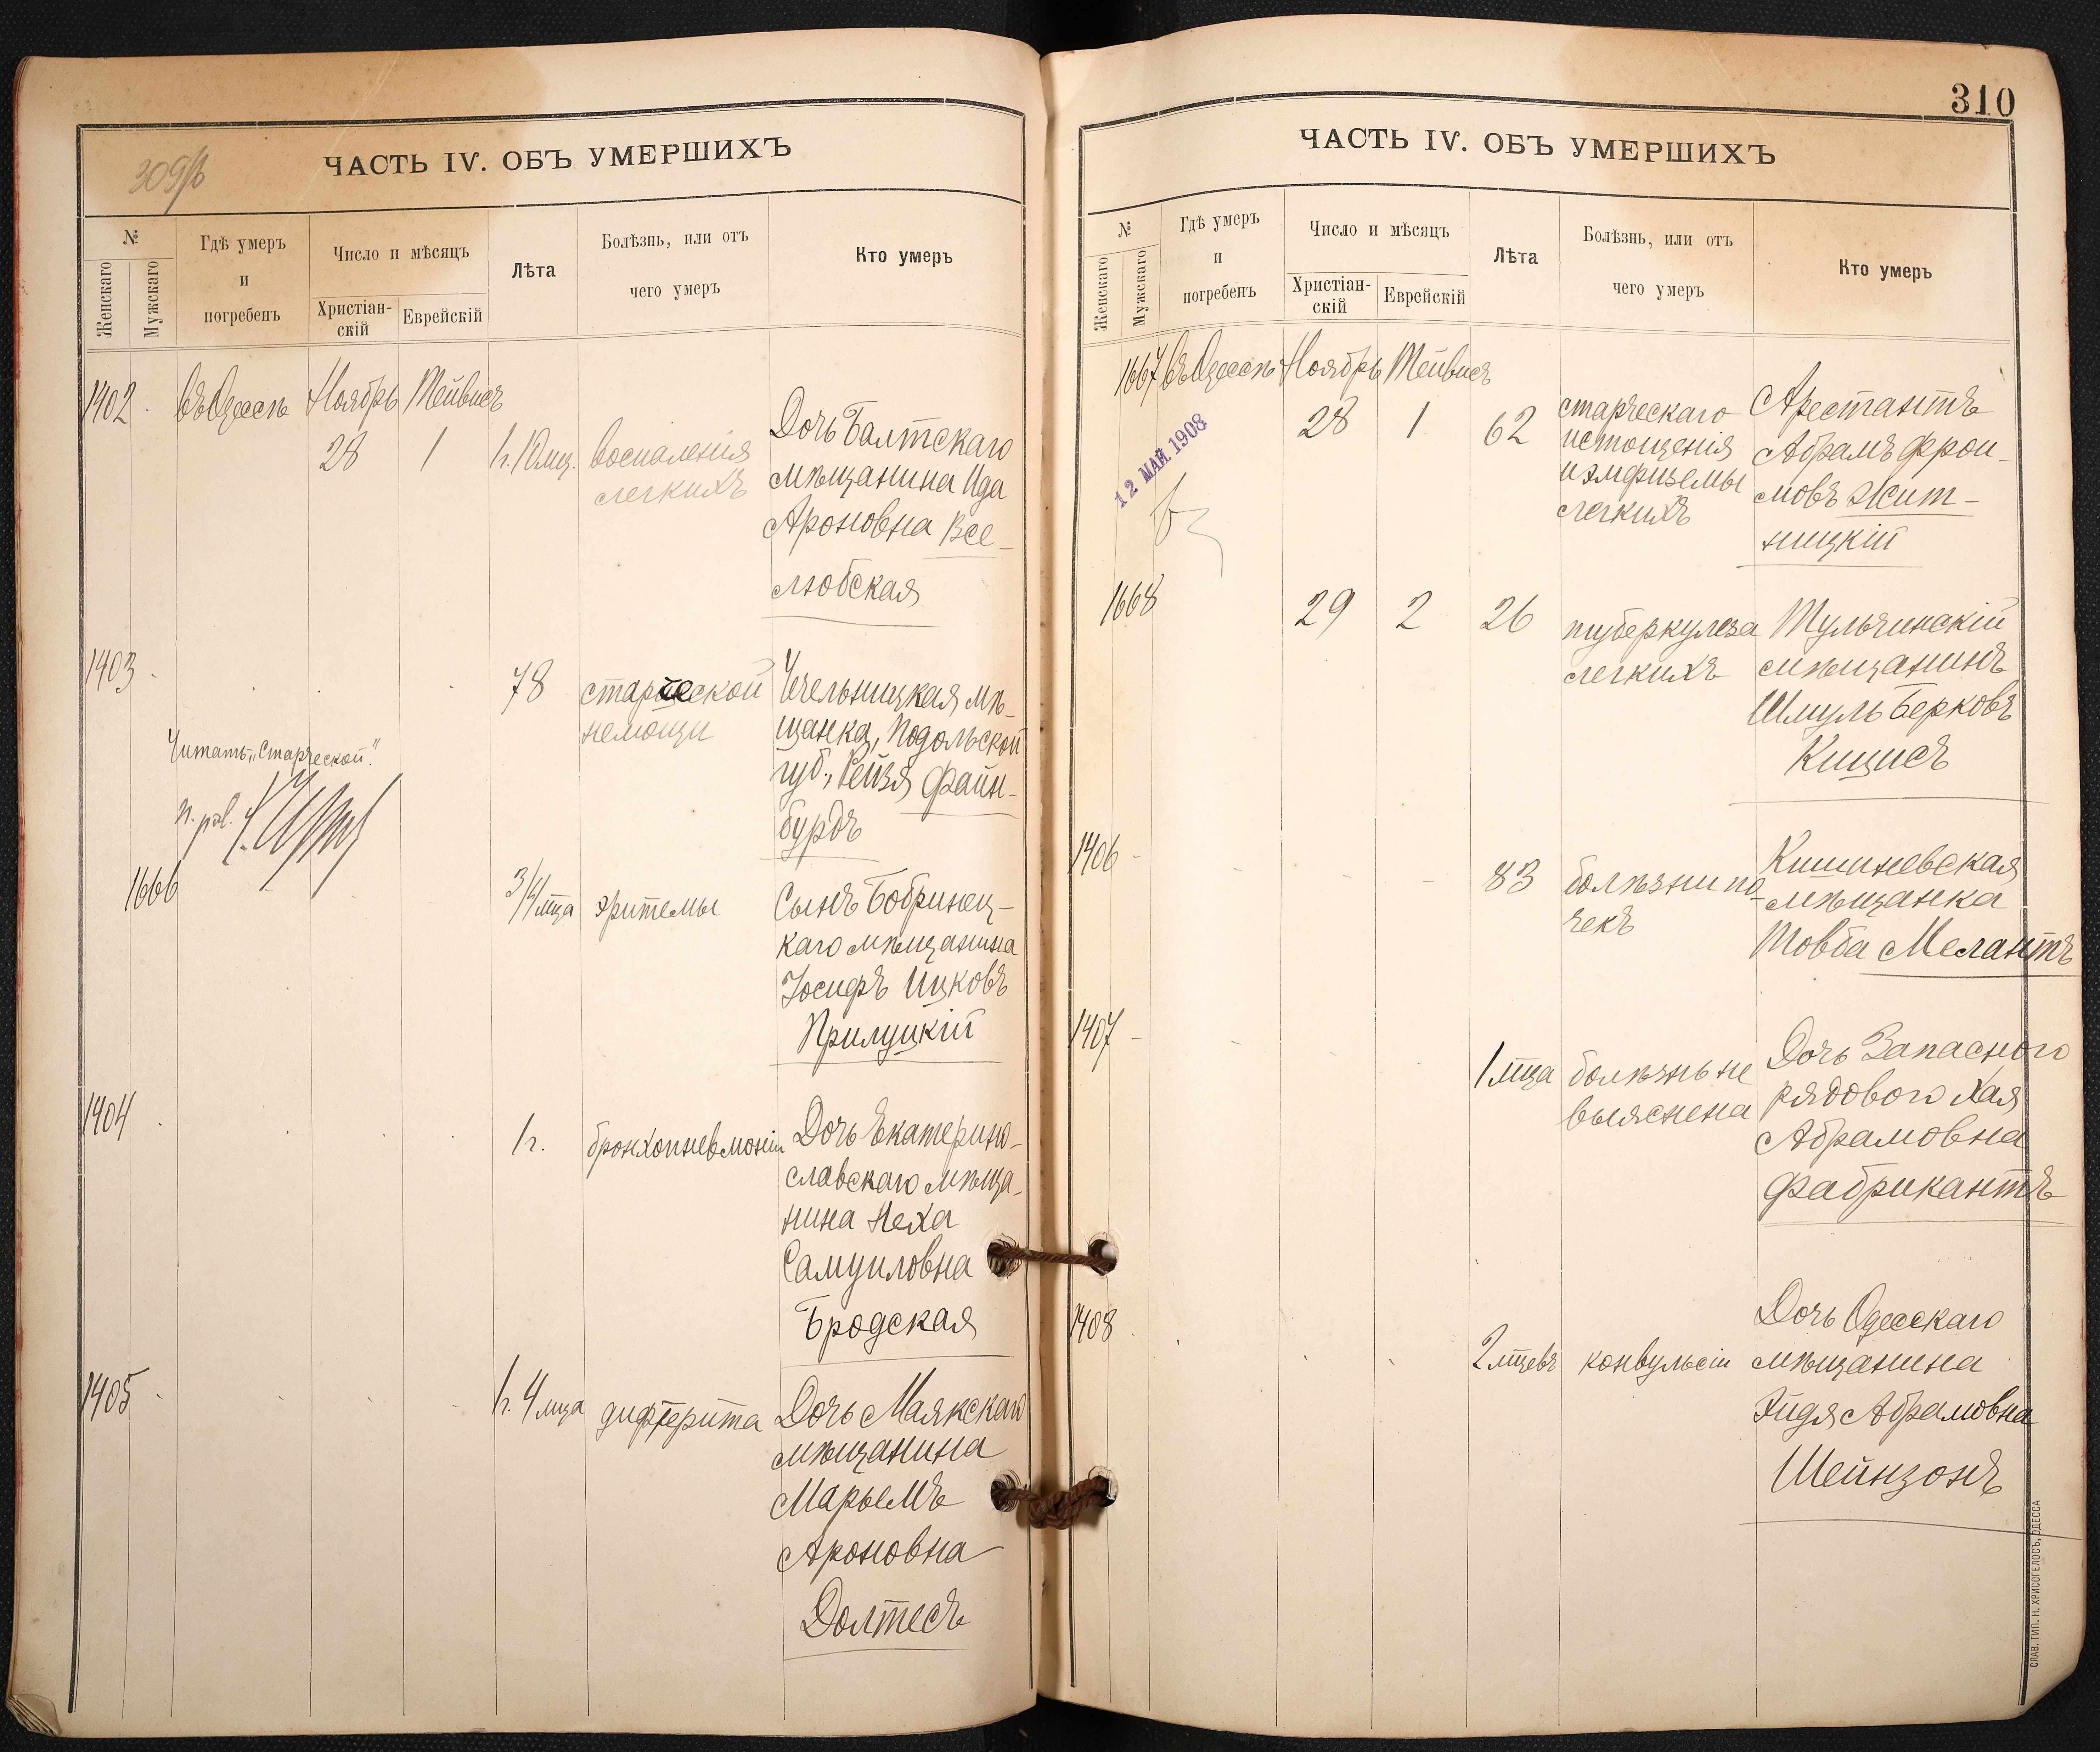 309/б
ЧАСТЬ IV. ОБЪ УМЕРШИХЪ
№
Женскаго
Мужскаго
Гдѣ умеръ
и
погребенъ
Число и мѣсяцъ
Христіан-
скій
Еврейскій
Лѣта
Болѣзнь, или отъ
чего умеръ
Кто умеръ
1402
въ Одессѣ
Ноябрь
Тейвисъ
28
1
1г. 10 мц.
воспаленія
легкихъ
Дочь Балтскаго
мѣщанина Ида
Ароновна Все-
любская
1403
78
старческой
немощи
Чечельницкая мѣ-
щанка, Подольской
губ., Рейзя Файн-
бурдъ
Читать: „Старческой."
1666
3/4 мца
эритемы
Сынъ Бобринец-
каго мѣщанина
Іосифъ Ицковъ
Прилуцкій
1404
1г.
бронхопневмоніи
Дочь Екатерино-
славскаго мѣща-
нина Неха
Самуиловна
Бродская
1405
1г. 4 мца
дифтерита
Дочь Маякскаго
мѣщанина
Марьемъ
Ароновна
Долтесъ
310
ЧАСТЬ IV. ОБЪ УМЕРШИХЪ
№
Женскаго
Мужскаго
Гдѣ умеръ
и
погребенъ
Число и мѣсяцъ
Христіан-
скій
Еврейскій
Лѣта
Болѣзнь, или отъ
чего умеръ
Кто умеръ
1667
въ Одессѣ
Ноябрь
Тейвисъ
28
1
62
старческаго
истощенія
и эмфиземы
легкихъ
Арестантъ
Абрамъ Фрои-
мовъ Жит-
ницкій
12 МАЙ 1908
1668
29
2
26
туберкулеза
легкихъ
Тульчинскій
мѣщанинъ
Шмуль Берковъ
Кищисъ
1406
83
болѣзни по-
чекъ
Кишиневская
мѣщанка
Товба Меламтъ
1407
1 мца
болѣзнь не
выяснена
Дочь Запаснаго
рядового Хая
Абрамовна
Фабрикантъ
1408
2 мцевъ
конвульсіи
Дочь Одесскаго
мѣщанина
Эйдя Абрамовна
Шейнзонъ
СЛАВ. ТИП. Н. ХРИСОГЕЛОСЪ, ОДЕССА